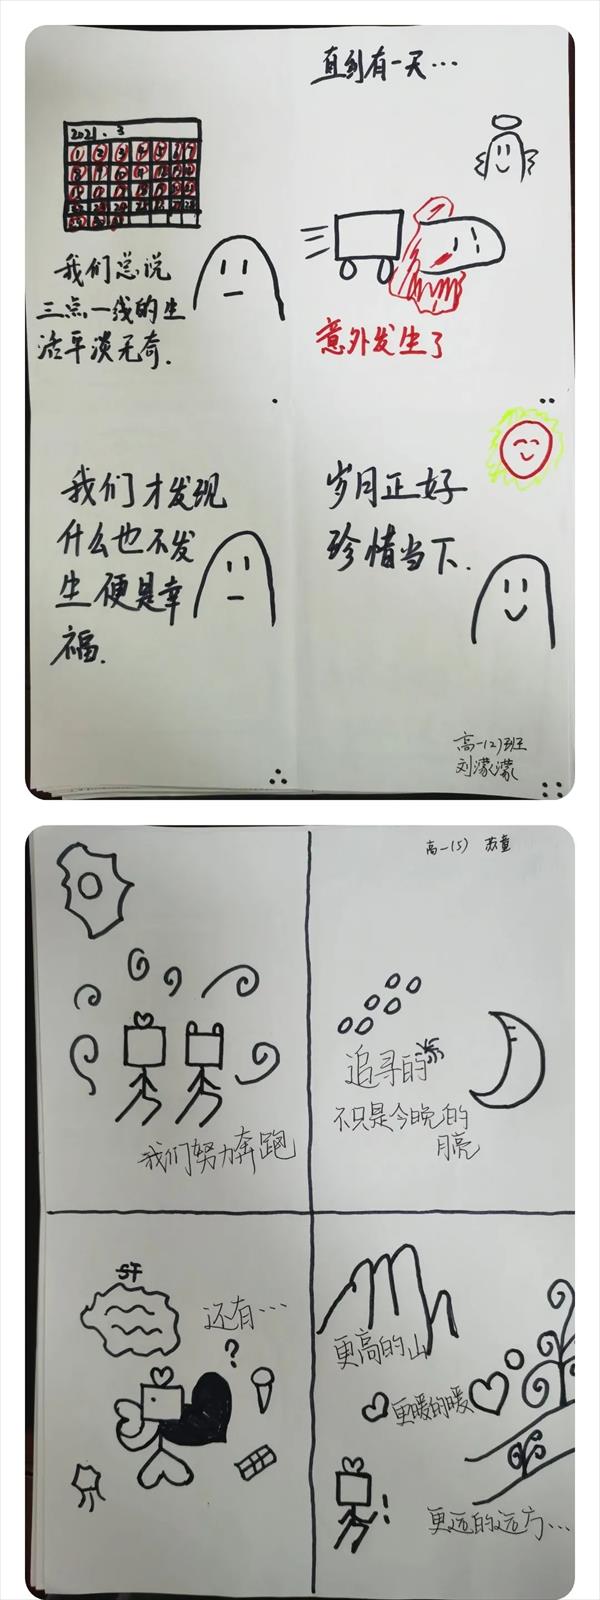 2021.3
我们总说
三点一线的生
活平淡无奇.
直到有一天...
意外发生了
我们才发现
什么也不发
生便是幸
福.
岁月正好
珍惜当下.
高一(2)班
刘濛濛
高一(5) 苏童
我们努力奔跑
追寻的
不只是今晚的
月亮
还有...
?
更高的山
更暖的暖
更远的远方...